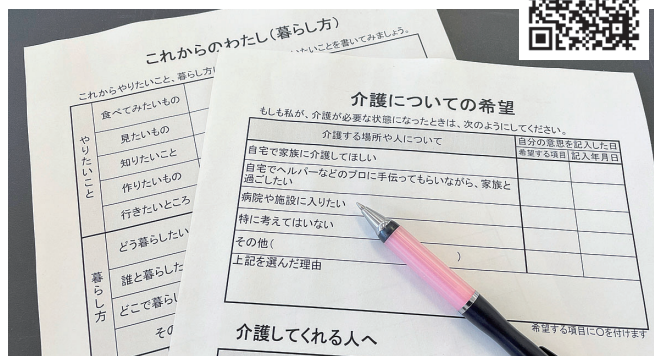 これからのわたし(暮らし方)
これからやりたいこと、暮らし方
いたいことを書いてみましょう。
やりたいこと
食べてみたいもの
見たいもの
知りたいこと
作りたいもの
行きたいところ
暮らし方
どう暮らしたい
誰と暮らした
どこで暮らし
その
介護についての希望
もしも私が、介護が必要な状態になったときは、次のようにしてください。
介護する場所や人について
自分の意思を記入した日
希望する項目
記入年月日
自宅で家族に介護してほしい
自宅でヘルパーなどのプロに手伝ってもらいながら、家族と
過ごしたい
病院や施設に入りたい
特に考えてはいない
その他( )
上記を選んだ理由
希望する項目に○を付けます
介護してくれる人へ